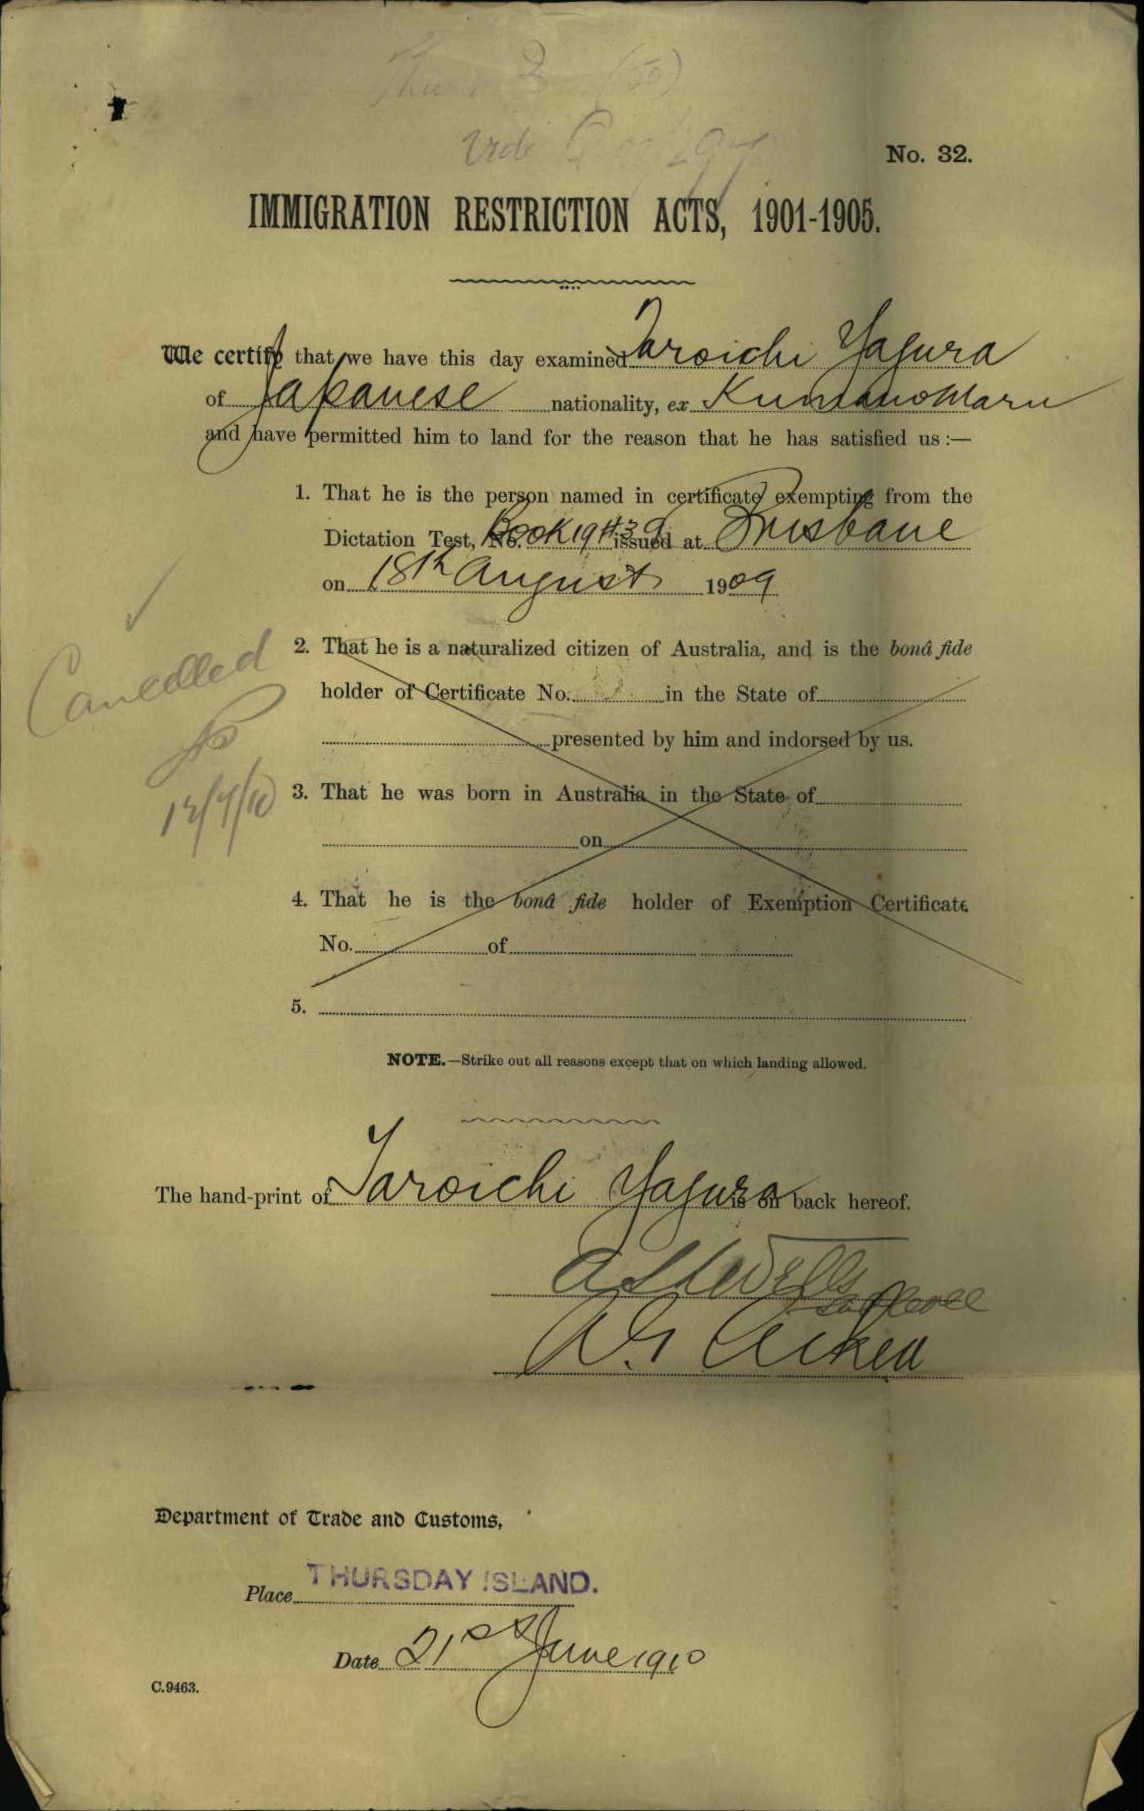 Vide
No. 32.
IMMIGRATION RESTRICTION ACTS, 1901-1905.
We certify that we have this day examined Taroichi Yagura
of Japanese nationality, ex Kumano Maru
and have permitted him to land for the reason that he has satisfied us :—
1. That he is the person named in certificate exempting from the
Dictation Test, No. Book 19 #39 issued at Brisbane
on 18th August 1909
2. That he is a naturalized citizen of Australia, and is the bonâ fide
Cancelled
holder of Certificate No. in the State of
presented by him and indorsed by us.
12/7/10
3. That he was born in Australia in the State of
on
4. That he is the bonâ fide holder of Exemption Certificate
No. of
5.
NOTE.—Strike out all reasons except that on which landing allowed.
The hand-print of Taroichi Yagura is on back hereof.
Department of Trade and Customs,
Place THURSDAY ISLAND.
Date 21st June 1910
C.9463.